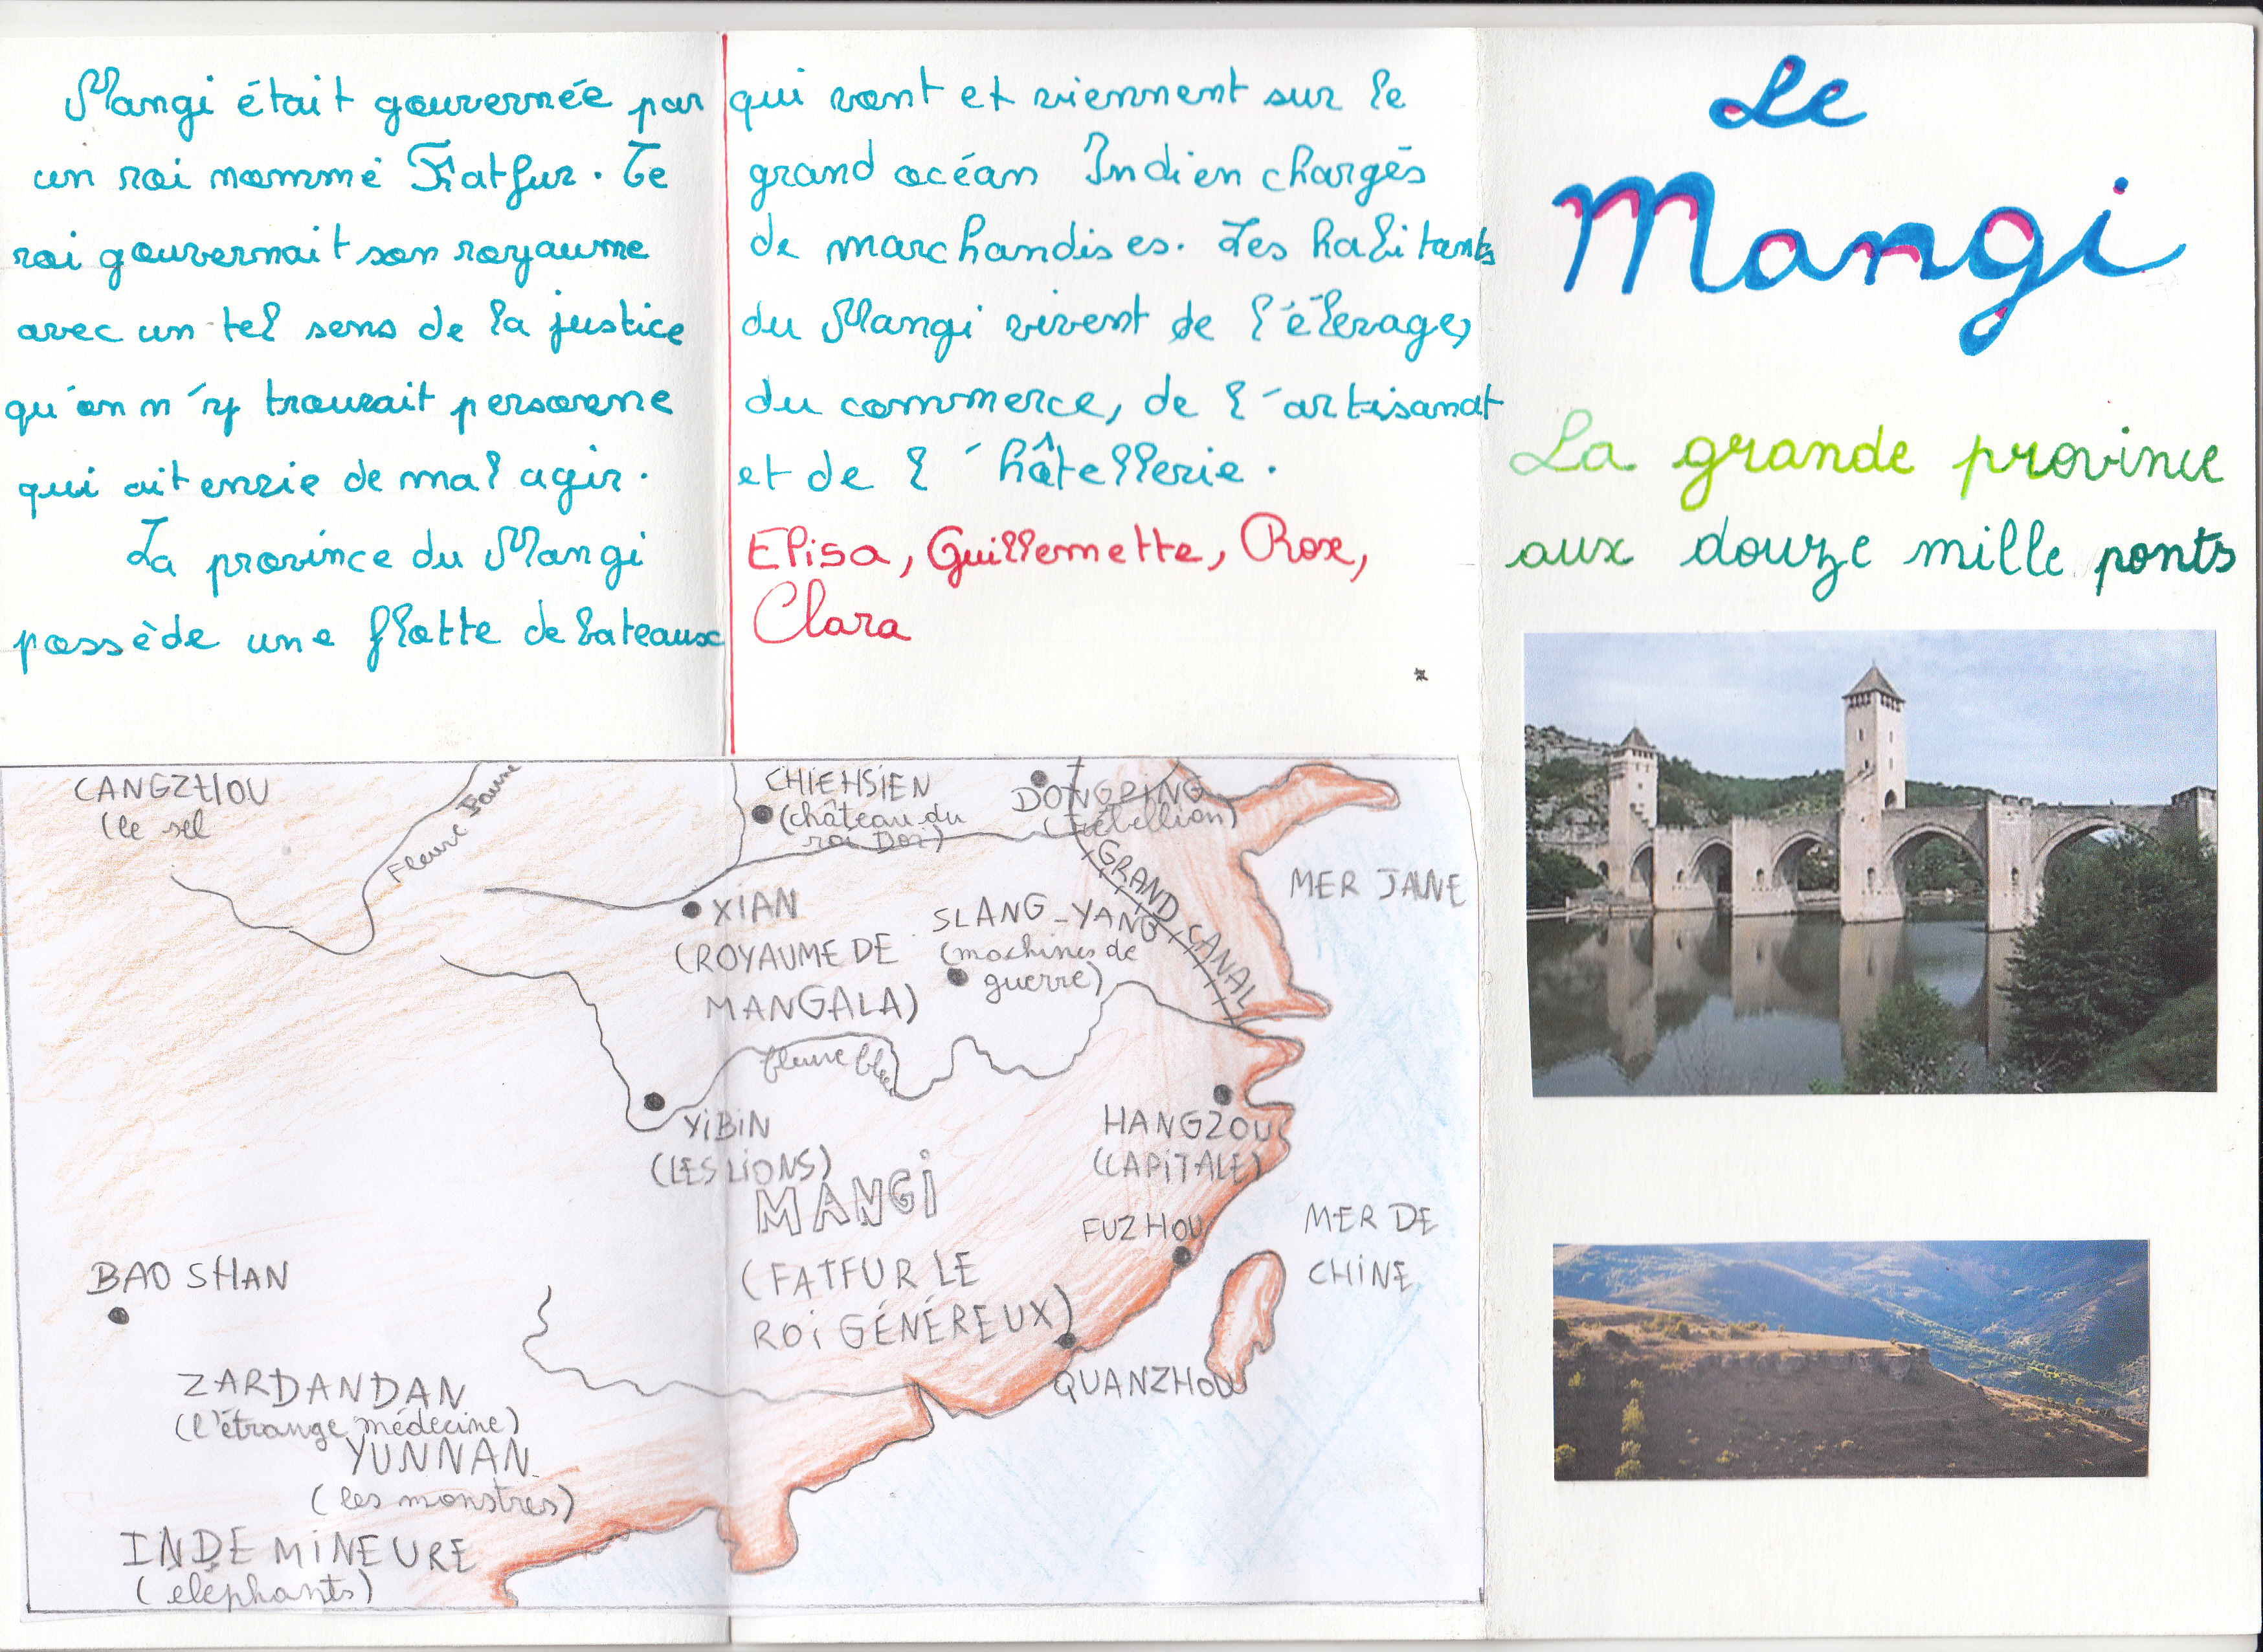 Mangi était gouvernée par
un roi nommé Fatfur. Ce
roi gouvernait son royaume
avec un tel sens de la justice
qu'on n'y trouvait personne
qui ait envie de mal agir.
La province du Mangi
possède une flotte de bateaux
qui vont et viennent sur le
grand océan Indien chargés
de marchandises. Les habitants
du Mangi vivent de l'élevage,
du commerce, de l'artisanat
et de l'hôtellerie.
Elisa, Guillemette, Rox,
Clara
Le
Mangi
La grande province
aux douze mille ponts
CANGZHOU
(le sel
Fleuve Jaune
CHIEHSIEN
(château du
roi Dor)
DONGPING
(rébellion)
GRAND CANAL
MER JAUNE
XIAN
(ROYAUME DE
MANGALA)
SLANG-YANG
(machines de
guerre)
fleuve bleu
YIBIN
(LES LIONS)
HANGZOU
(CAPITALE)
MANGI
(FATFUR LE
ROI GÉNÉREUX)
FUZHOU
MER DE
CHINE
QUANZHOU
BAO SHAN
ZARDANDAN
(l'étrange médecine)
YUNNAN
(les monstres)
INDE MINEURE
(éléphants)